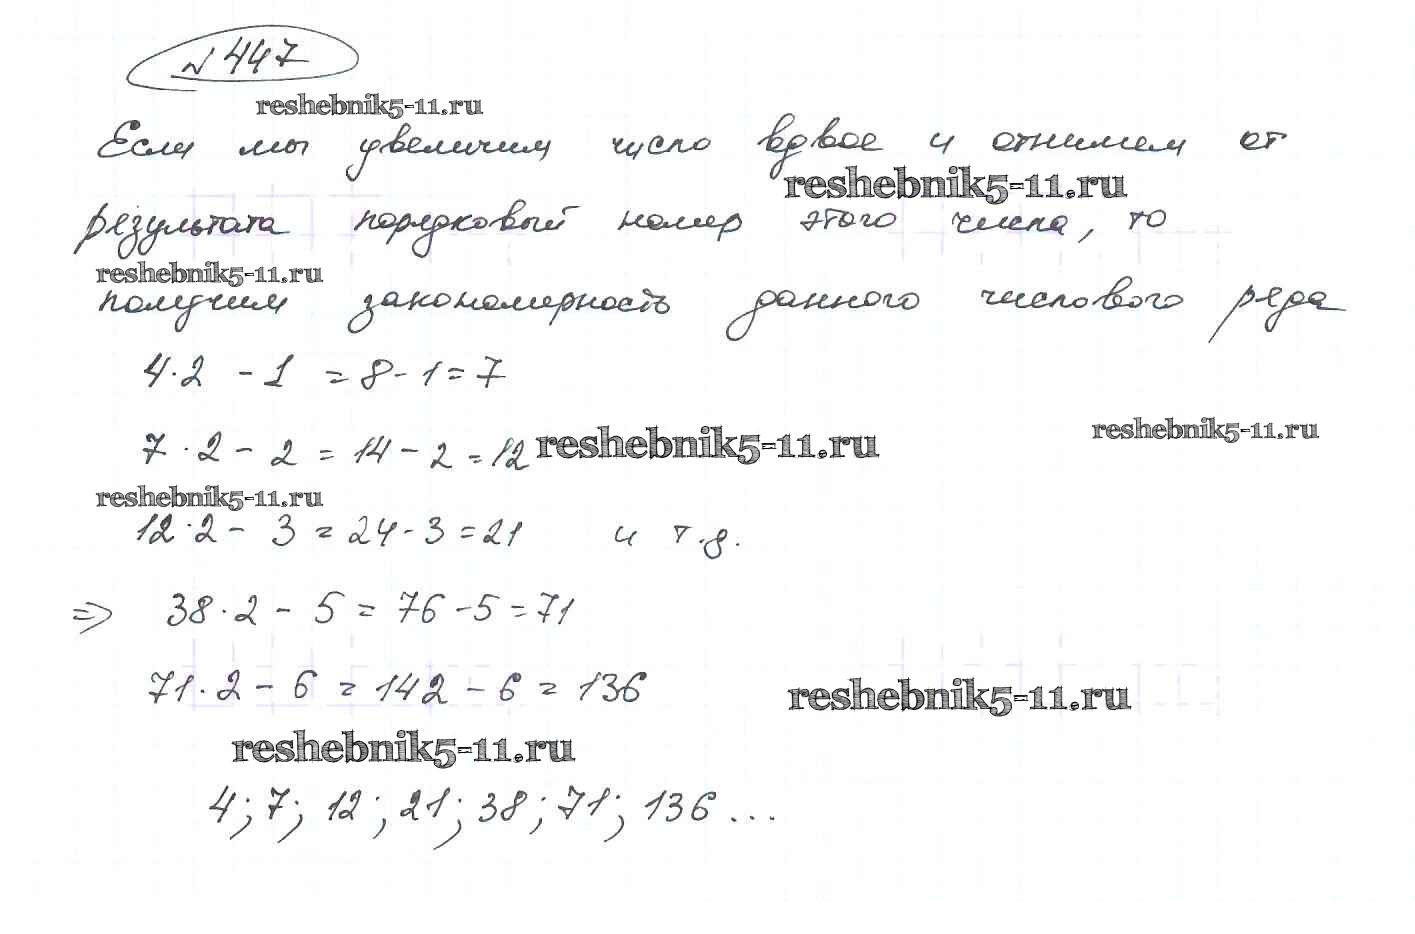 № 447
reshebnik5-11.ru
Если мы увеличим число вдвое и отнимем от
reshebnik5-11.ru
результата порядковый номер этого числа, то
reshebnik5-11.ru
получим закономерность данного числового ряда
4·2 - 1 = 8 - 1 = 7
reshebnik5-11.ru
7·2 - 2 = 14 - 2 = 12 reshebnik5-11.ru
reshebnik5-11.ru
12·2 - 3 = 24 - 3 = 21 и т.д.
=> 38·2 - 5 = 76 - 5 = 71
71·2 - 6 = 142 - 6 = 136
reshebnik5-11.ru
reshebnik5-11.ru
4; 7; 12; 21; 38; 71; 136 ...